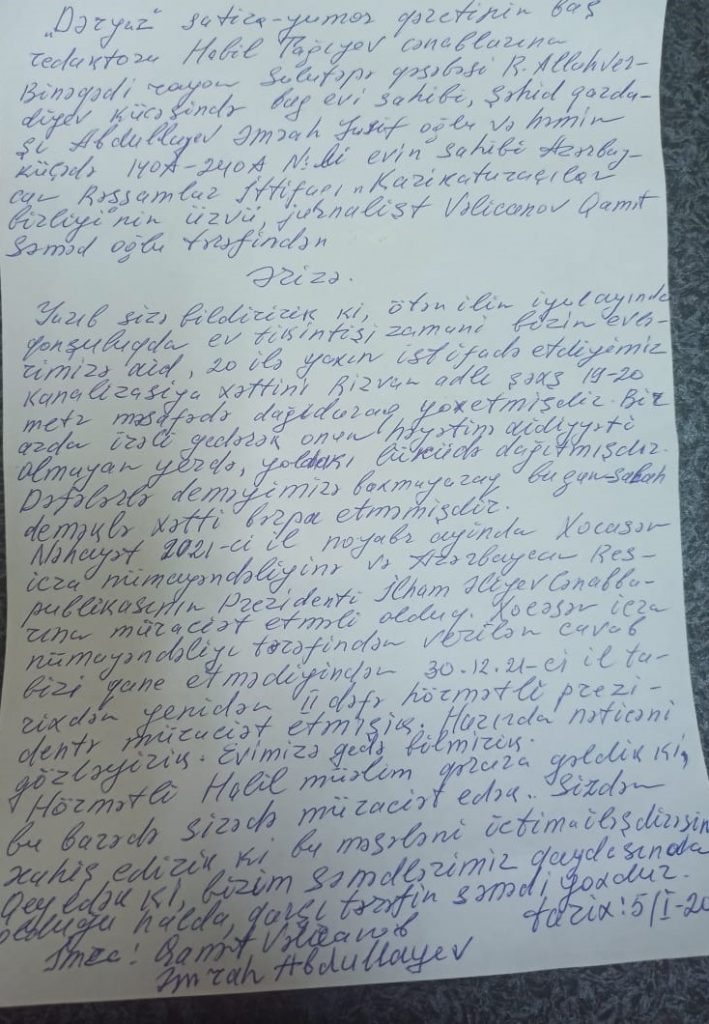 „Dəryaz" satira-yumor qəzetinin baş
redaktoru Həbil Tağıyev cənablarına
Binəqədi rayon Sulutəpə qəsəbəsi R. Allahver-
diyev küçəsində bağ evi sahibi, Şəhid qarda-
şı Abdullayev Əmrah Yusif oğlu və həmin
küçədə 140A-240A №-li evin sahibi Azərbay-
can Rəssamlar İttifaqı „Karikaturaçılar
birliyi"nin üzvü, jurnalist Vəlicanov Qamət
Səməd oğlu tərəfindən
Ərizə.
Yazıb sizə bildiririk ki, ötən ilin iyul ayında
qonşuluqda ev tikintisi zamanı bizim evlə-
rimizə aid, 20 ilə yaxın istifadə etdiyimiz
kanalizasiya xəttini Rizvan adlı şəxs 19-20
metr məsafədə dağıdaraq yoxetmişdir. Bir
azda irəli gedərək onun həyətinə aidiyyəti
olmayan yerdə, yoldakı lükuda dağıtmışdır.
Dəfələrlə deməyimizə baxmayaraq bugun-sabah
deməklə xətti bərpa etməmişdir.
Nəhayət 2021-ci il noyabr ayında Xocəsən
icra nümayəndəliyinə və Azərbaycan Res-
publikasının Prezidenti İlham Əliyev Cənabla-
rına müraciət etməli olduq. Xocəsən icra
nümayəndəliyi tərəfindən verilən cavab
bizi qane etmədiyindən 30.12.21-ci il ta-
rixdən yenidən II dəfə hörmətli prezi-
dentə müraciət etmişik. Hazırda nəticəni
gözləyirik. Evimizə gedə bilmirik.
Hörmətli Həbil müəlim qərara gəldik ki,
bu barədə sizədə müraciət edək. Sizdən
xahiş edirik ki bu məsələni ictimailəşdirəsin
Qeyd edək ki, bizim sənədlərimiz qaydasında
olduğu halda, qarşı tərəfin sənədi yoxdur.
İmza: Qamət Vəlicanov tarix: 5/I-20
Əmrah Abdullayev